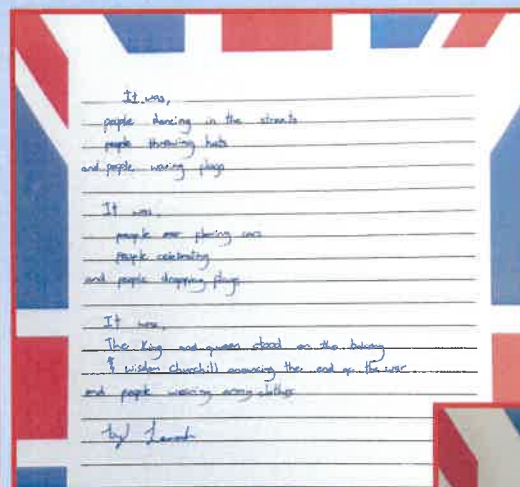 It was,
people dancing in the streets
people throwing hats
and people waving flags
It was,
people over placing cars
people celebrating
and people dropping flags
It was,
The King and queen stood on the balcony
& wisdon churchill anouncing the end of the war
and people wearing army clothes
by